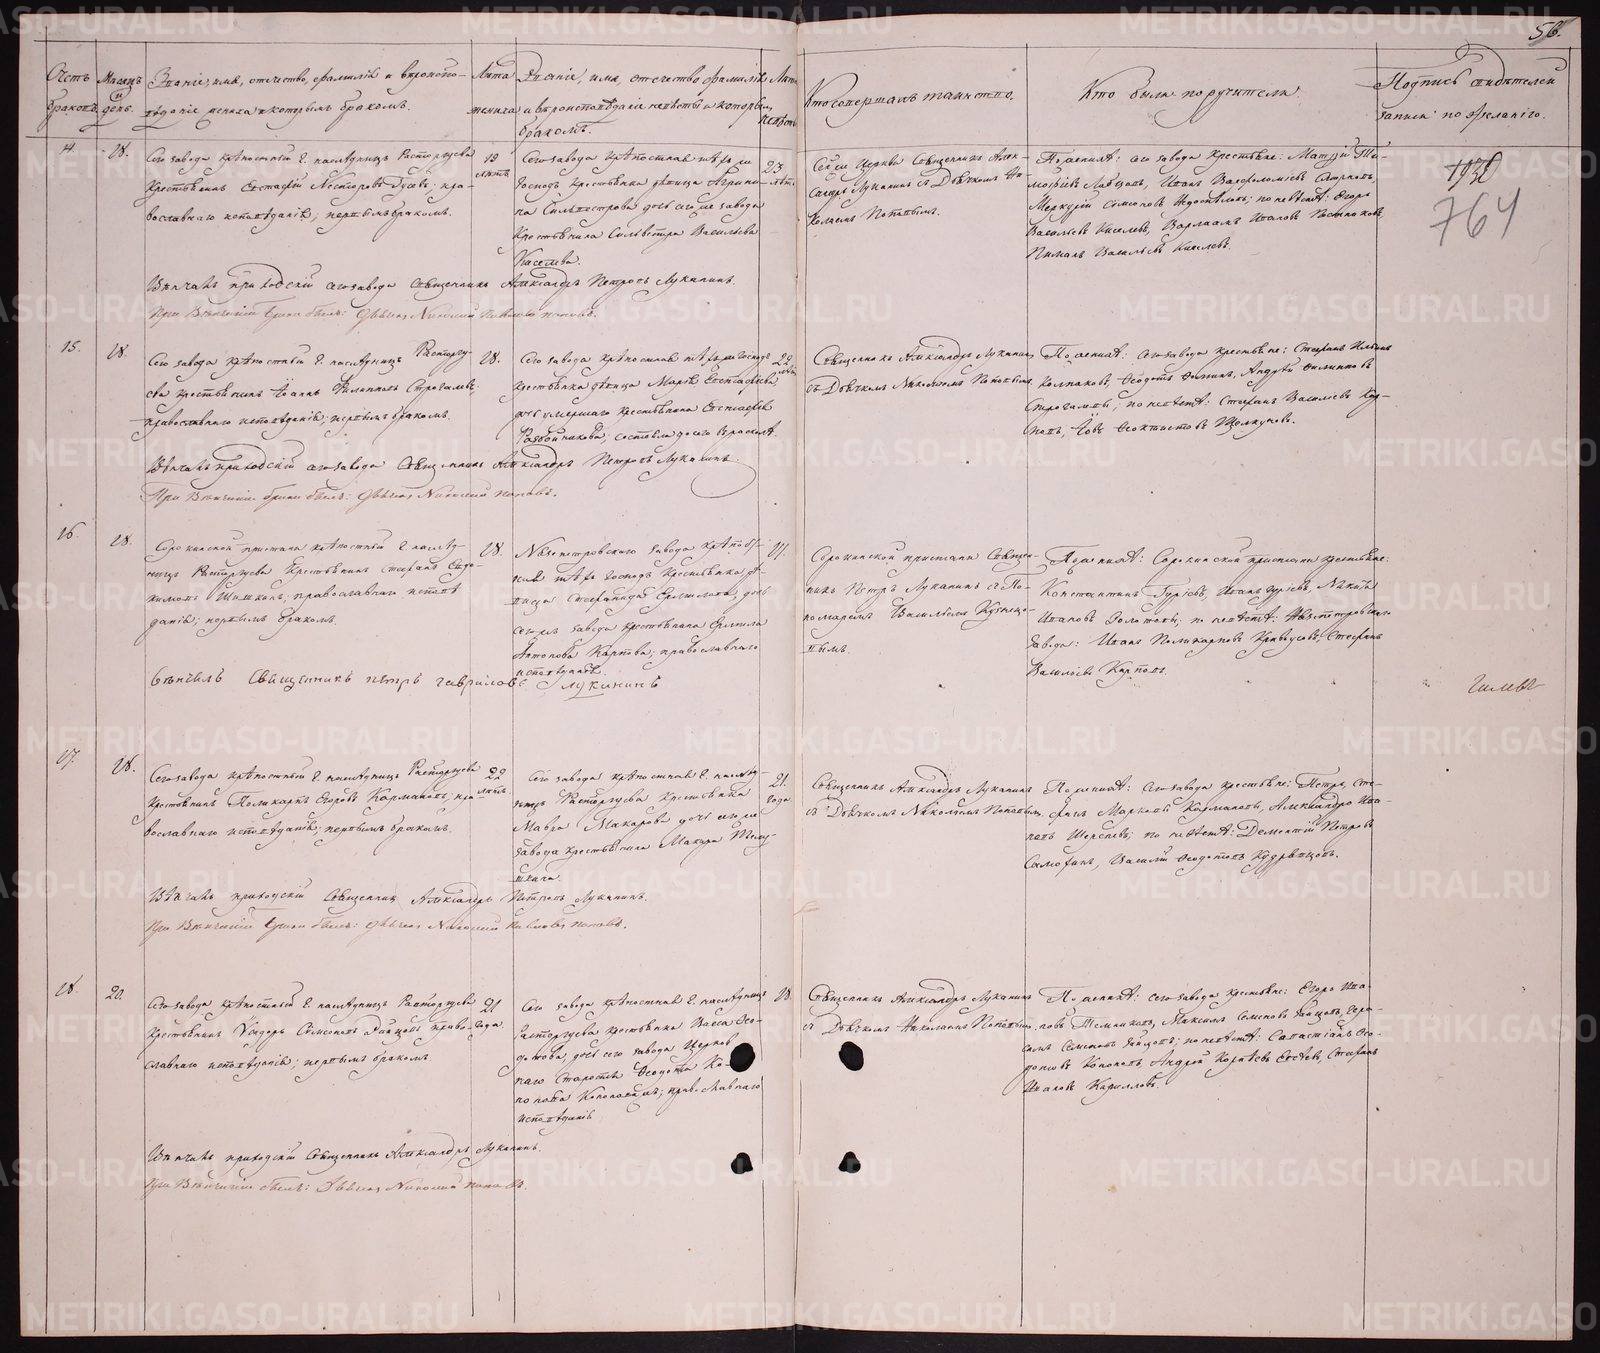 56.
Счетъ браковъ.
Месяцъ и день.
Званіе, имя, отечество, фамилія и вѣроиспо-
вѣданіе жениха и которымъ бракомъ.
Лѣта жениха
Званіе, имя, отечество фамилія
и вѣроисповѣданіе невѣсты и которымъ
бракомъ.
Лѣта невѣсты
Кто совершалъ таинство.
Кто были поручители.
Подпись свидѣтелей
записи по желанію.
18.
Сего завода крѣпостный Г. наслѣдницъ Расторгуева
крестьянинъ Евстафій Несторовъ Гусевъ, пра-
вославнаго исповѣданія; первымъ бракомъ.
19 лѣтъ
Сего завода крѣпостная тѣхъ же
Господъ крестьянка дѣвица Агрипи-
на Сильвестрова дочь сего же завода
крестьянина Сильвестра Васильева
Киселева.
23 лѣтъ
Сей же Церкви Священникъ Алек-
сандръ Луканинъ съ Дьячкомъ Ни-
колаемъ Поповымъ.
По женихѣ: сего завода крестьяне: Матвѣй Ти-
мофѣевъ
Иванъ Варфоломѣевъ
Меркурій Семеновъ
по невѣстѣ: Егоръ
Васильевъ Киселевъ, Варлаамъ Ивановъ
Пименъ Васильевъ Киселевъ.
764
Вѣнчалъ приходскій сего завода Священникъ Александръ Петровъ Луканинъ.
При Вѣнчаніи брака былъ: Дьячекъ Николай Павловъ Поповъ.
15.
18.
Сего завода крѣпостный Г. наслѣдницъ Расторгу-
ева крестьянинъ Іоаннъ Филипповъ Строгалевъ,
православнаго исповѣданія; первымъ бракомъ.
18.
Сего завода крѣпостная тѣхъ же Господъ
крестьянка дѣвица Марія Евстафіева
дочь умершаго крестьянина Евстафія
Разбойникова, состояла до сего въ расколѣ.
22
Священникъ Александръ Луканинъ
съ Дьячкомъ Николаемъ Поповымъ.
По женихѣ: сего завода крестьяне: Стефанъ Ильинъ
Колпаковъ, Ѳедотъ Ѳоминъ, Андрей Филипповъ
Строгалевы; по невѣстѣ: Стефанъ Васильевъ
Іовъ Ѳеоктистовъ Щелкуновъ.
Вѣнчалъ приходскій сего завода Священникъ Александръ Петровъ Луканинъ.
При Вѣнчаніи брака былъ: Дьячекъ Николай Поповъ.
16.
18.
Сорокинской пристани крѣпостный Г. наслѣд-
ницъ Расторгуева крестьянинъ Стефанъ Евдо-
кимовъ Шашковъ, православнаго исповѣ-
данія; первымъ бракомъ.
18.
Нязепетровскаго завода крѣпост-
ная тѣхъ Господъ крестьянка дѣ-
вица Стефанида Ермилова, дочь
сего же завода крестьянина Ермила
Антонова Карпова; православнаго
исповѣданія.
17.
Сорокинской пристани Священ-
никъ Петръ Луканинъ съ По-
номаремъ Василіемъ Кузнецо-
вымъ.
По женихѣ: Сорокинской пристани крестьяне:
Константинъ Гурьевъ, Иванъ Гурьевъ, Никита
Ивановъ Золотовы; по невѣстѣ: Нязепетровскаго
завода: Иванъ Поликарповъ Кривоусовъ, Стефанъ
Васильевъ Карповъ.
вѣнчалъ священникъ петръ гавриловъ луканинъ
17.
18.
Сего завода крѣпостный Г. наслѣдницъ Расторгуева
крестьянинъ Поликарпъ Егоровъ Кармановъ, пра-
вославнаго исповѣданія; первымъ бракомъ.
22 лѣтъ.
Сего завода крѣпостная Г. наслѣд-
ницъ Расторгуева крестьянка
Мавра Макарова дочь сего же
завода крестьянина Макара
21. года
Священникъ Александръ Луканинъ
съ Дьячкомъ Николаемъ Поповымъ.
По женихѣ: сего завода крестьяне: Петръ, Сте-
фанъ Марковы Кармановы, Александръ Ива-
новъ Шерстневъ; по невѣстѣ: Дементій Петровъ
Самофинъ, Василій Ѳедотовъ Кудрявцовъ.
Вѣнчалъ приходскій Священникъ Александръ Петровъ Луканинъ.
При Вѣнчаніи брака былъ: Дьячекъ Николай Павловъ Поповъ.
18.
20.
Сего завода крѣпостный Г. наслѣдницъ Расторгуева
крестьянинъ Ѳедоръ Семеновъ Зайцовъ, право-
славнаго исповѣданія; первымъ бракомъ.
21 года.
Сего завода крѣпостная Г. наслѣдницъ
Расторгуева крестьянка Васса Ѳео-
дотова, дочь сего завода Церков
наго Старосты Ѳеодота Ко-
нонова Кононова; православнаго
исповѣданія.
18.
Священникъ Александръ Луканинъ
съ Дьячкомъ Николаемъ Поповымъ.
По женихѣ: сего завода крестьяне: Егоръ Ива-
новъ Темниковъ, Максимъ Семеновъ Зайцовъ, Гера-
симъ Семеновъ Зайцовъ; по невѣстѣ: Савастіанъ Ѳео-
Кононовъ, Андрей Корнѣевъ
Стефанъ
Ивановъ Кирилловъ.
Вѣнчалъ приходскій Священникъ Александръ Луканинъ.
При Вѣнчаніи былъ: Дьячекъ Николай Поповъ.
METRIKI.GASO-URAL.RU